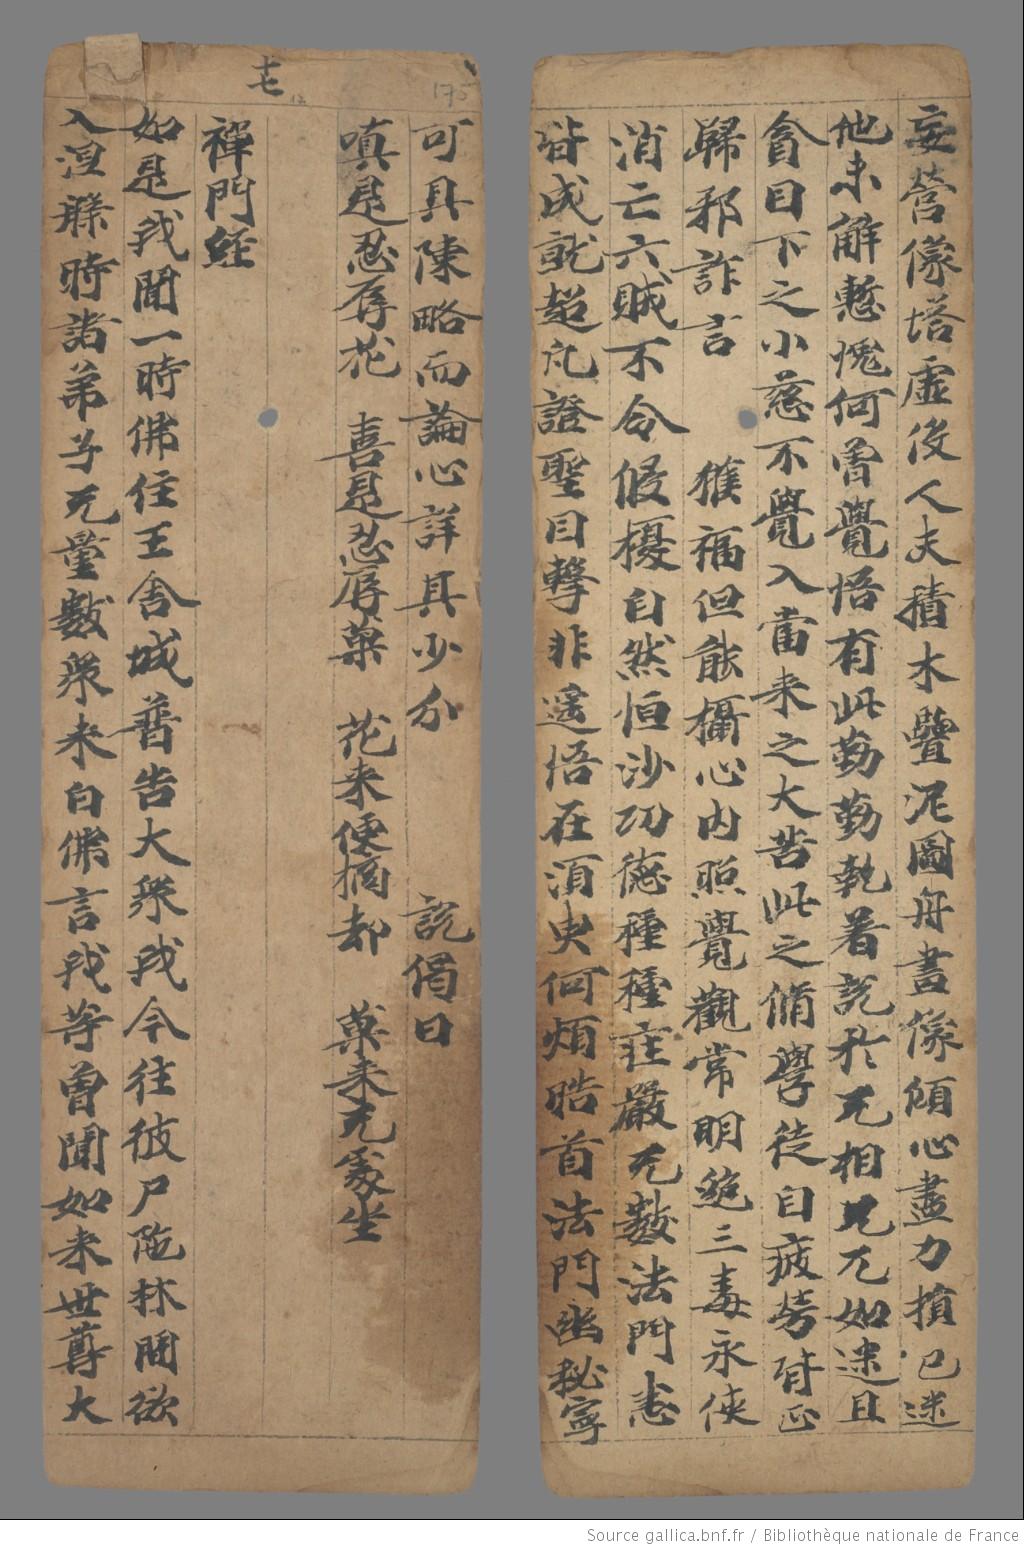 妄營像塔虛役人夫積木疊泥圖舟畫像傾心盡力損已迷
他未解慙愧何曾覺悟有此勤勤執着說於无相兀兀如迷且
貪目下之小慈不覺入當来之大苦此之脩學徒自疲勞背正
歸邪詐言　獲福但能攝心内照覺觀常明絶三毒永使
消亡六賊不令侵擾自然恒沙功德種種莊嚴无數法門悉
皆成就超凡證聖目擊非遥悟在須臾何煩皓首法門幽秘寧
可具陳略而論心詳具少分　說偈曰
嗔是忍辱花　喜是忍辱菓　花来便摘却　菓来无處坐
禪門經
如是我聞一時佛住王舍城普告大衆我今往彼尸陁林間欲
入涅槃時諸弟子无量數衆来白佛言我等曽聞如来世尊大
七
175
Source gallica.bnf.fr / Bibliothèque nationale de France